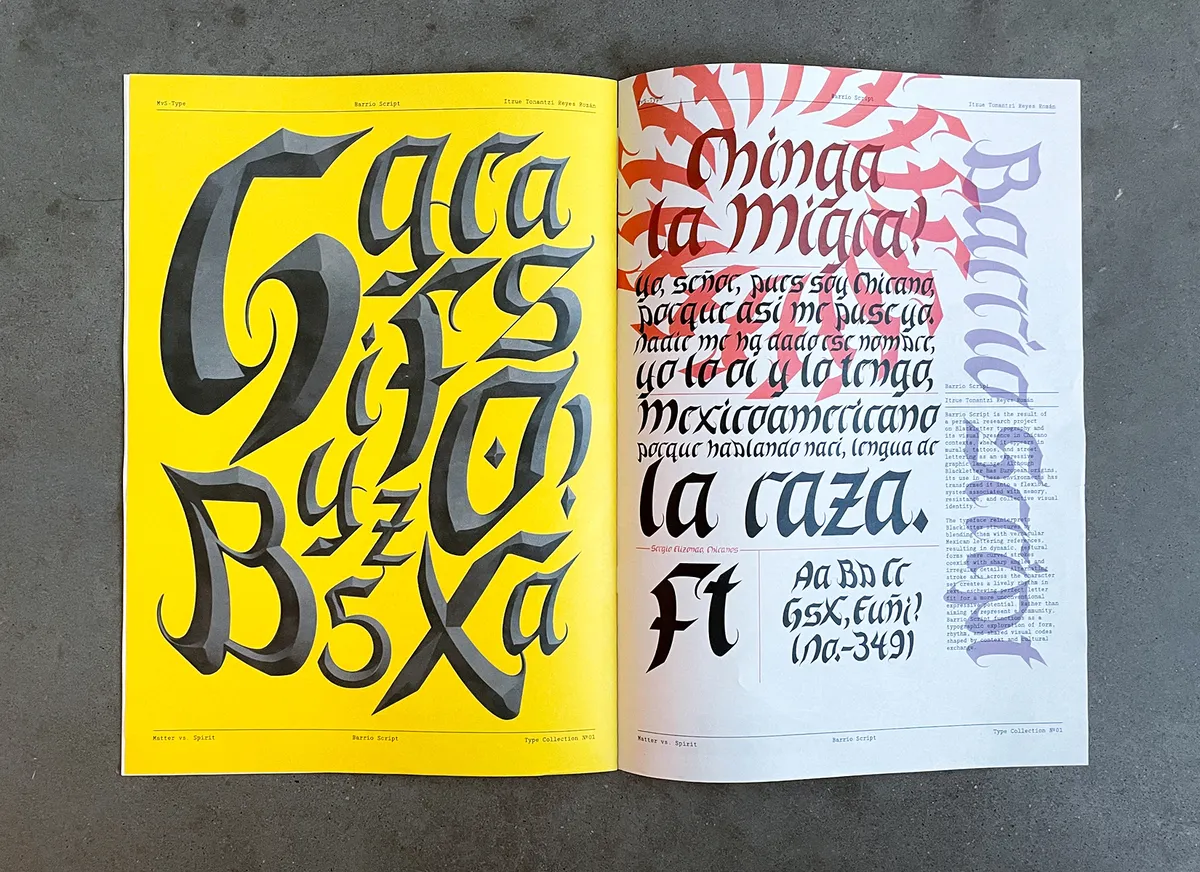 MvS-Type
Barrio Script
Itzue Tonantzi Reyes Román
Gara
ifs
yzO!
By
5Xa
Matter vs. Spirit
Barrio Script
Type Collection Nº01
Barrio Script
Itzue Tonantzi Reyes Román
Chinga
la Migra!
yo, señor, pues soy Chicano,
porque asi me puse yo.
nadie me ha dado ese nombre,
yo lo oi y lo tengo,
Mexicoamericano
porque hablando naci, lengua de
la raza.
Sergio Elizondo, Chicanos
Ft
Aa Bb Cc
GsX, Euñi!
(No.-349)
Barrio Script
Barrio Script
Itzue Tonantzi Reyes Román
Barrio Script is the result of
a personal research project
on Blackletter typography and
its visual presence in Chicano
contexts, where it appears in
murals, tattoos, and street
lettering as an expressive
graphic language. Although
blackletter has European origins,
its use in these environment has
transformed it into a flexible
system associated with memory,
resistance, and collective visual
identity.
The typeface reinterprets
Blackletter structures by
blending them with vernacular
Mexican lettering references,
resulting in dynamic, gestural
forms where curved strokes
coexist with sharp angles and
irregular details. Alternating
stroke axis across the character
set creates a lively rhythm in
text, achieving perfect letter
fit for a more unconventional
expressive potential. Rather than
aiming to represent a community,
Barrio Script functions as a
typographic exploration of form,
rhythm, and shared visual codes
shaped by context and cultural
exchange.
Matter vs. Spirit
Barrio Script
Type Collection Nº01